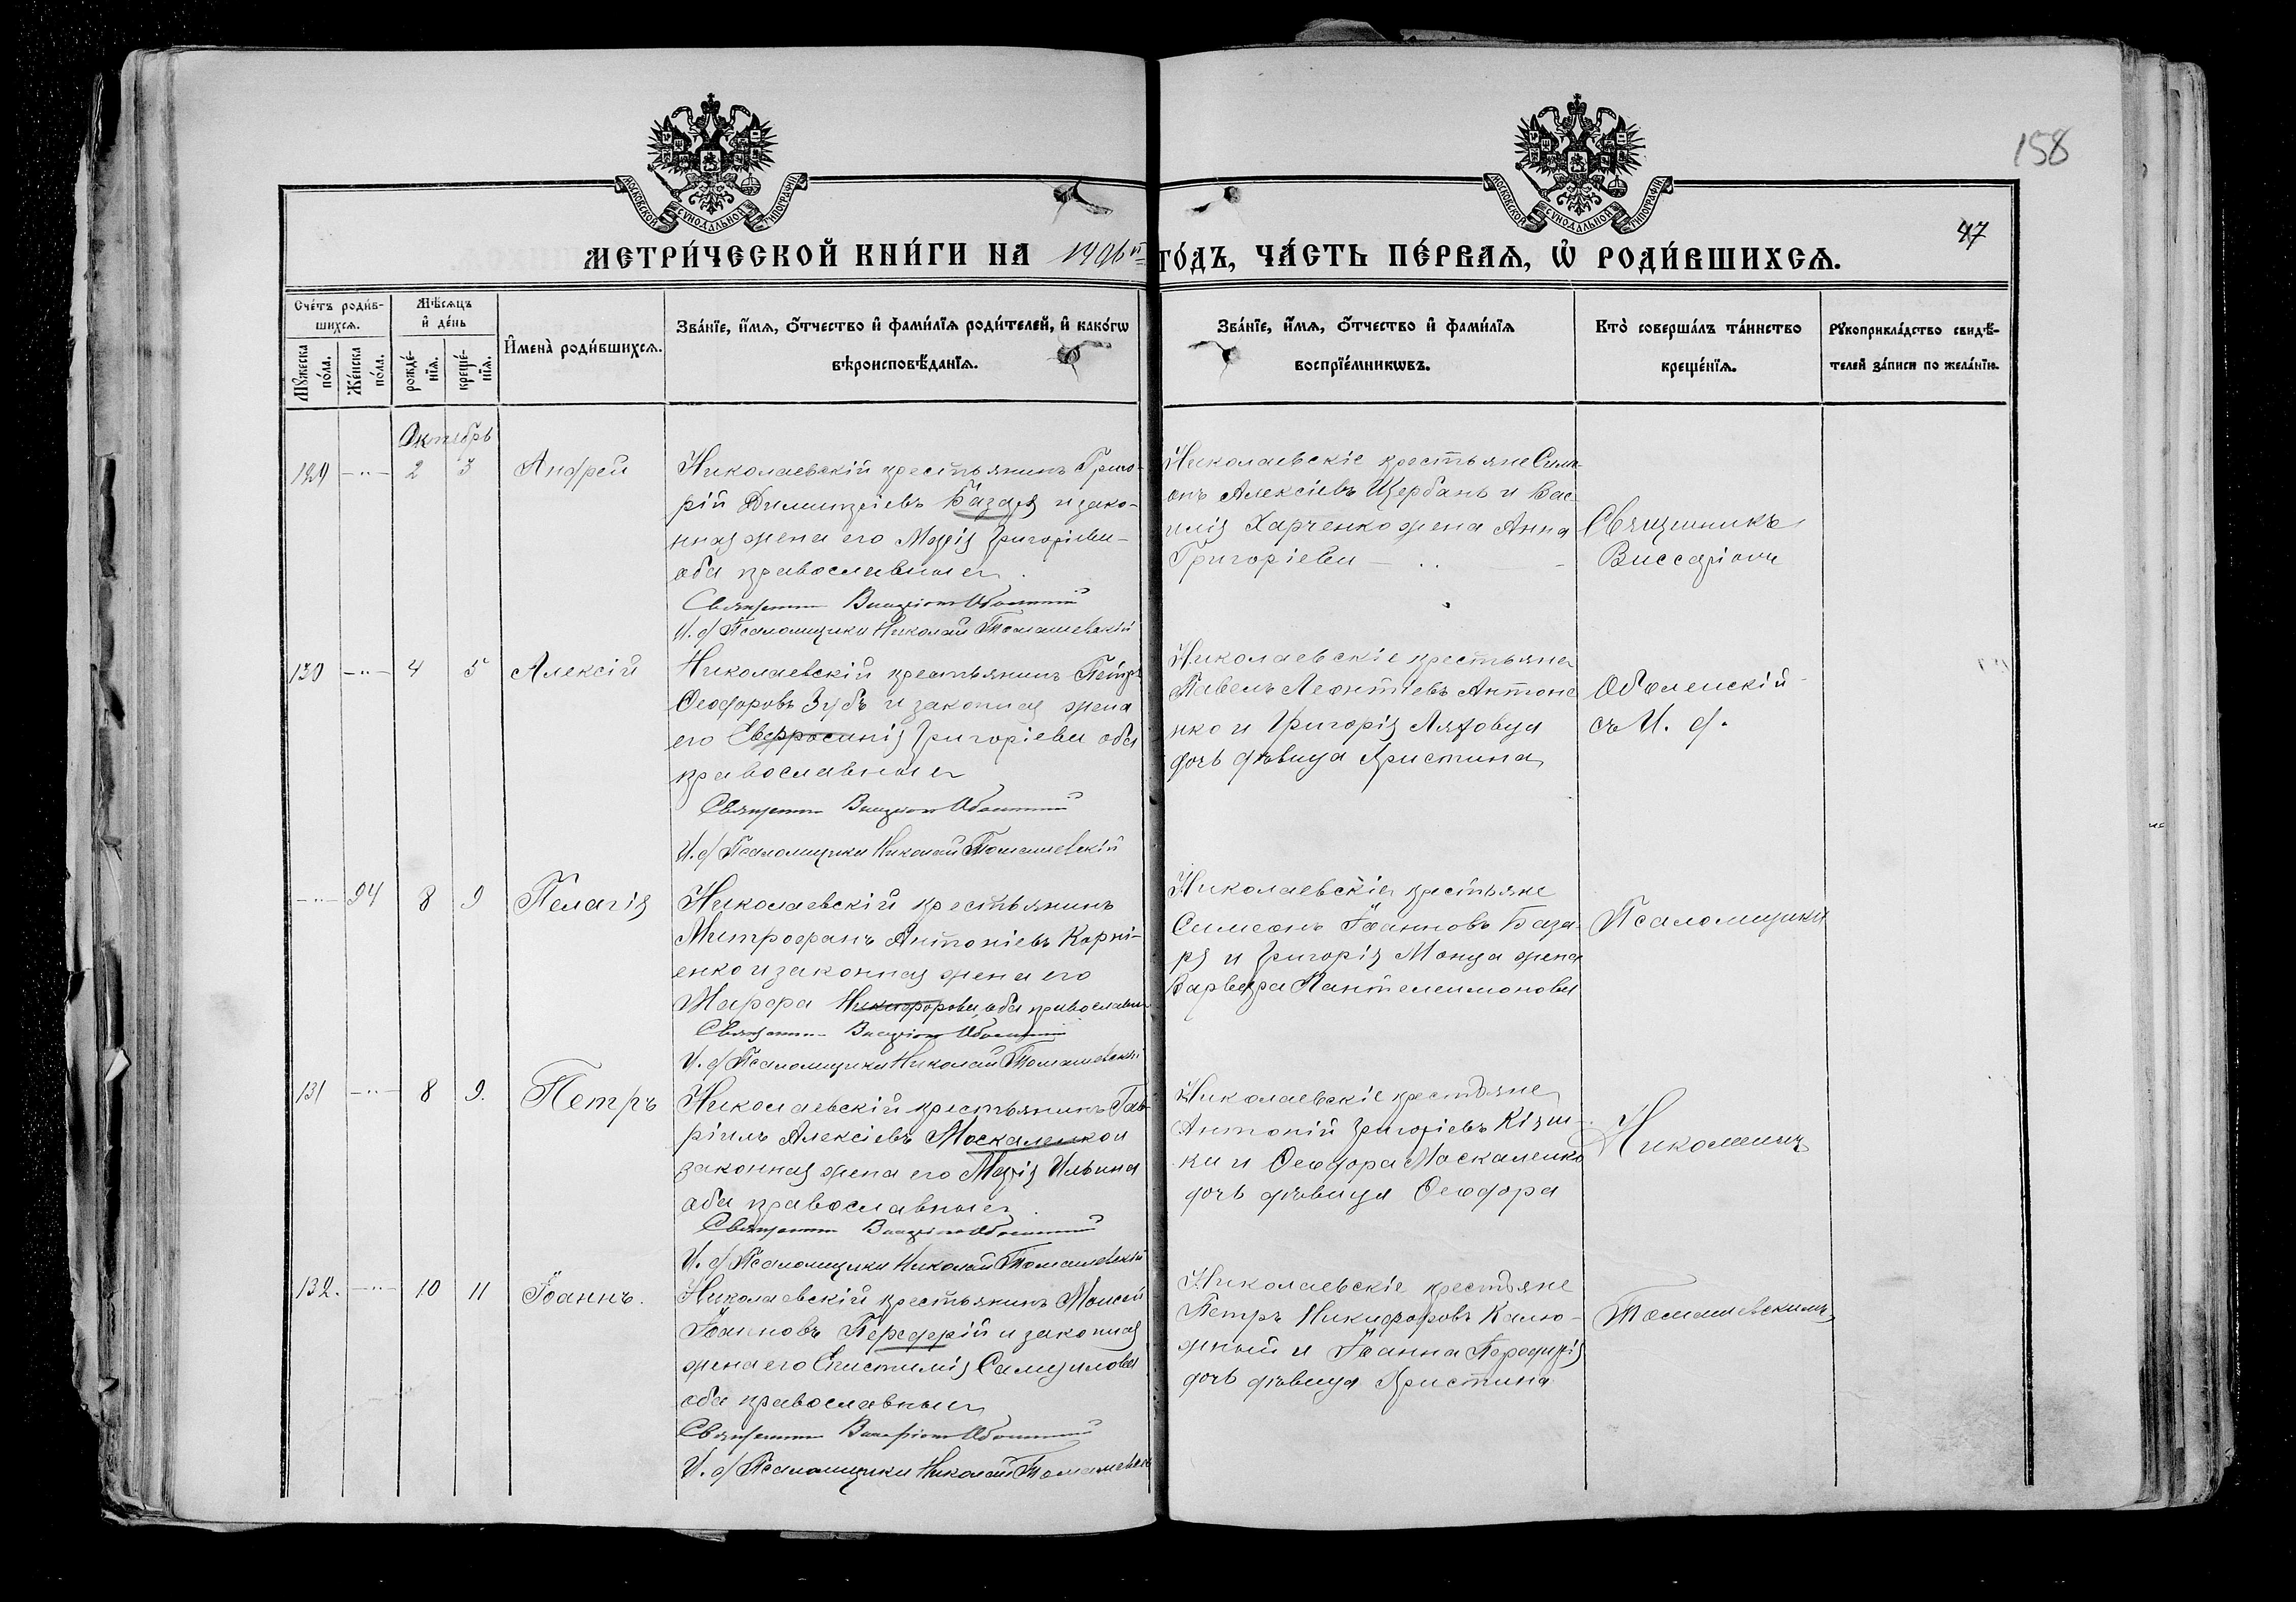 158
47
МОСКОВСКОЙ СѴНОДАЛЬНОЙ ТИПОГРАФІИ
МОСКОВСКОЙ СѴНОДАЛЬНОЙ ТИПОГРАФІИ
МЕТРИ́ЧЕСКОЙ КНИ́ГИ НА 1906й ГО́ДЪ, ЧА́СТЬ ПЕ́РВАЯ, Ѡ҆ РОДИ́ВШИХСЯ.
Сче́тъ роди́в-
шихся.
Мꙋ́жеска по́ла.
Же́нска по́ла.
Мѣ́сяцъ
и҆ де́нь
рожде́-
нїя.
креще́-
нїя.
И҆мена̀ роди́вшихся.
Зва́нїе, и҆́мя, о҆́тчество и҆ фами́лїя роди́телей, и҆ како́гѡ
вѣроисповѣ́данїя.
Зва́нїе, и҆́мя, о҆́тчество и҆ фами́лїя
воспрїе́мникѡвъ.
Кто̀ соверша́лъ та́инство
креще́нїя.
Рꙋкоприкла́дство свидѣ́-
телей за́писи по жела́нїю.
Октябрь
129 -"- 2 3 Андрей
Николаевскій крестьянинъ Григо-
рій Димитріевъ Базаръ и зако-
нная жена его Марія Григоріева
оба православные
Священникъ Виссаріонъ Оболенскій
И. д. Псаломщика Николай Томашевскій
Николаевскіе крестьяне Сим-
онъ Алексіевъ Щербань и Вас-
илія Харченко жена Анна
Григоріева
Священникъ
Виссаріонъ
130 -"- 4 5 Алексій
Николаевскій крестьянинъ Петръ
Ѳеодоровъ Зубъ и законная жена
его Евфросинія Григоріева оба
православные
Священникъ Виссаріонъ Оболенскій
И. д. Псаломщика Николай Томашевскій
Николаевскіе крестьяне
Павелъ Леонтіевъ Антоне
нко и Григорія Ляховца
дочь дѣвица Христина
Оболенскій
съ И. д.
-"- 94 8 9 Пелагія
Николаевскій крестьянинъ
Митрофанъ Антоніевъ Корні-
енко и законная жена его
Марфа Никифорова оба православн
Священникъ Виссаріонъ Оболенскій
И. д. Псаломщика Николай Томашевскій
Николаевскіе крестьяне
Симеонъ Іоанновъ База-
ръ и Григорія Монца жена
Варвара Пантелеимонова
Псаломщика
131 -"- 8 9. Петръ
Николаевскій крестьянинъ Гав-
ріилъ Алексіевъ Москаленко и
законная жена его Марія Ильина
оба православные
Священникъ Виссаріонъ Оболенскій
И. д. Псаломщика Николай Томашевскій
Николаевскіе крестьяне
Антоній Григоріевъ Кіяш-
ка и Ѳеодора Москаленко
дочь дѣвица Ѳеодора
Николаемъ
132. -"- 10 11 Іоаннъ.
Николаевскій крестьянинъ Моисей
Іоанновъ Передерій и законная
жена его Епистимія Самуилова
оба православные
Священникъ Виссаріонъ Оболенскій
И. д. Псаломщика Николай Томашевск
Николаевскіе крестьяне
Петръ Никифоровъ Калю-
жный и Іоанна Передерія
дочь дѣвица Христина
Томашевскимъ